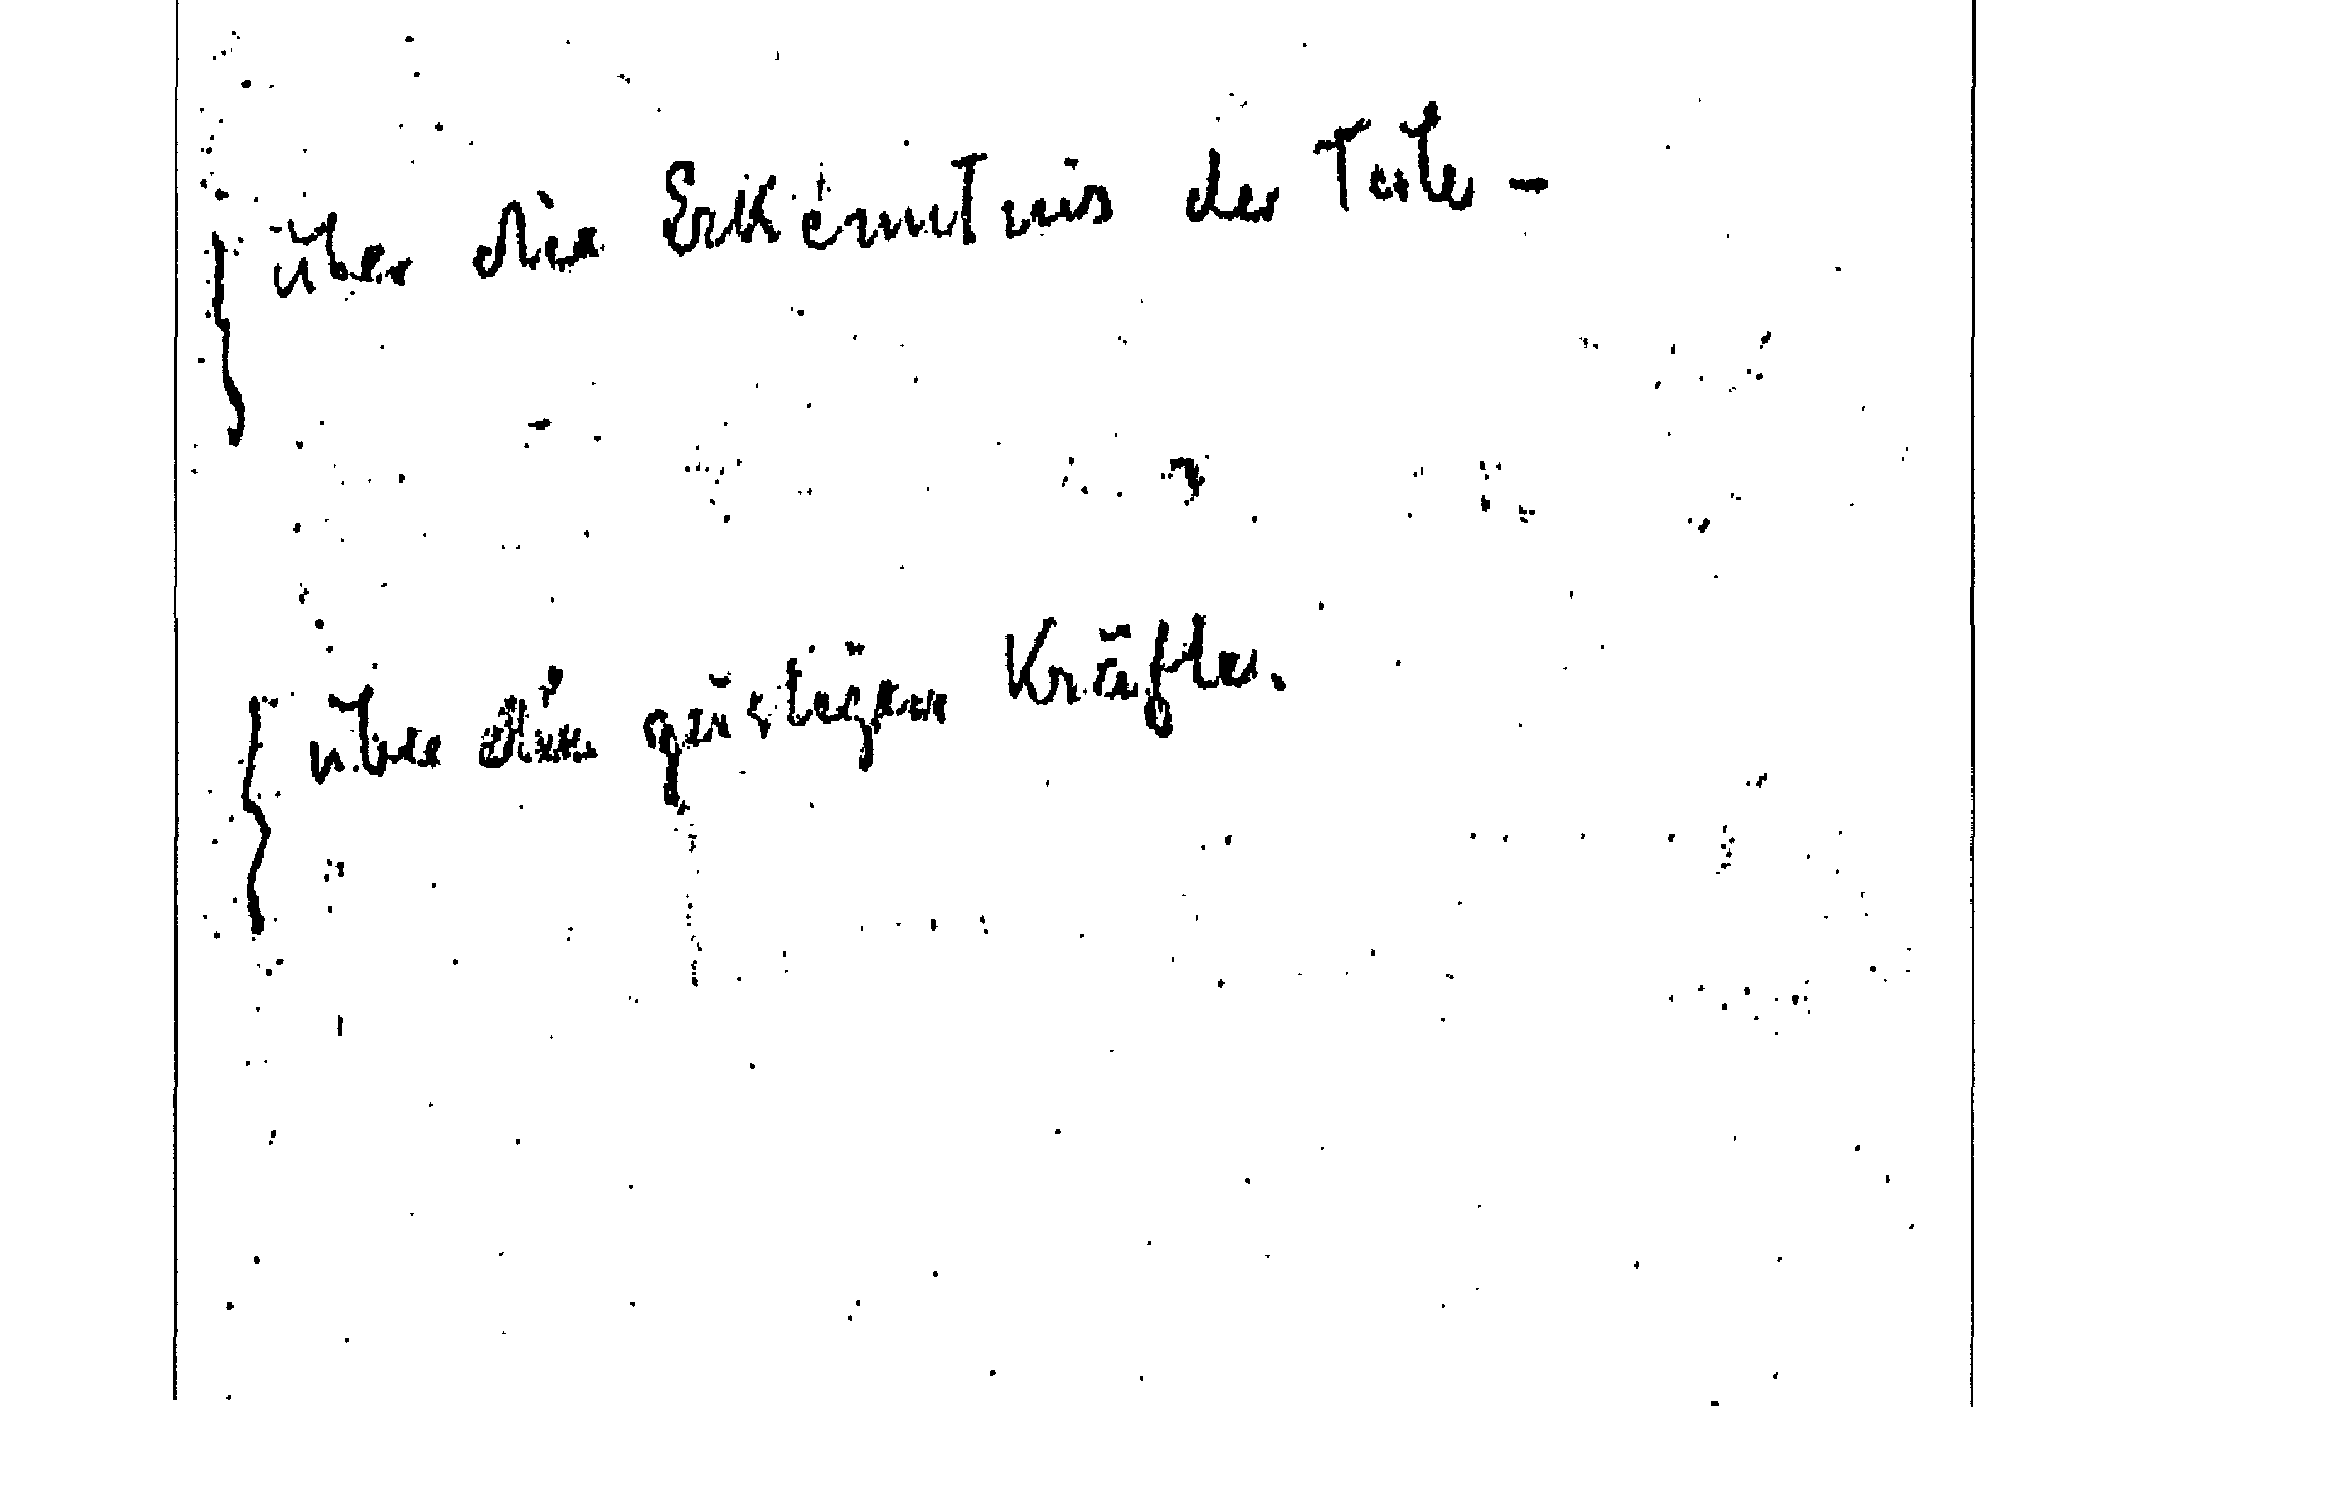 über die Erkenntnis der Toten -
über die geistigen Kräfte.